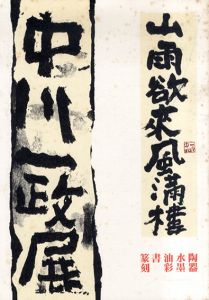 山雨欲来風満樓
陶器
水墨
油彩
書
篆刻
中川一政展